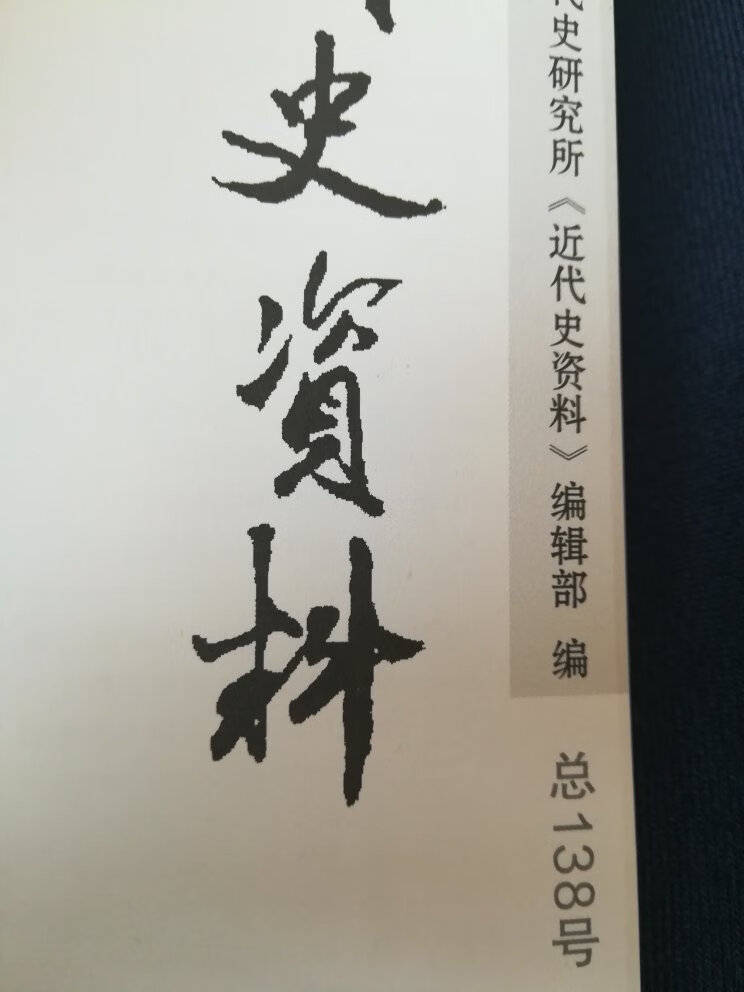 史資料
代史研究所《近代史资料》编辑部 编
总138号